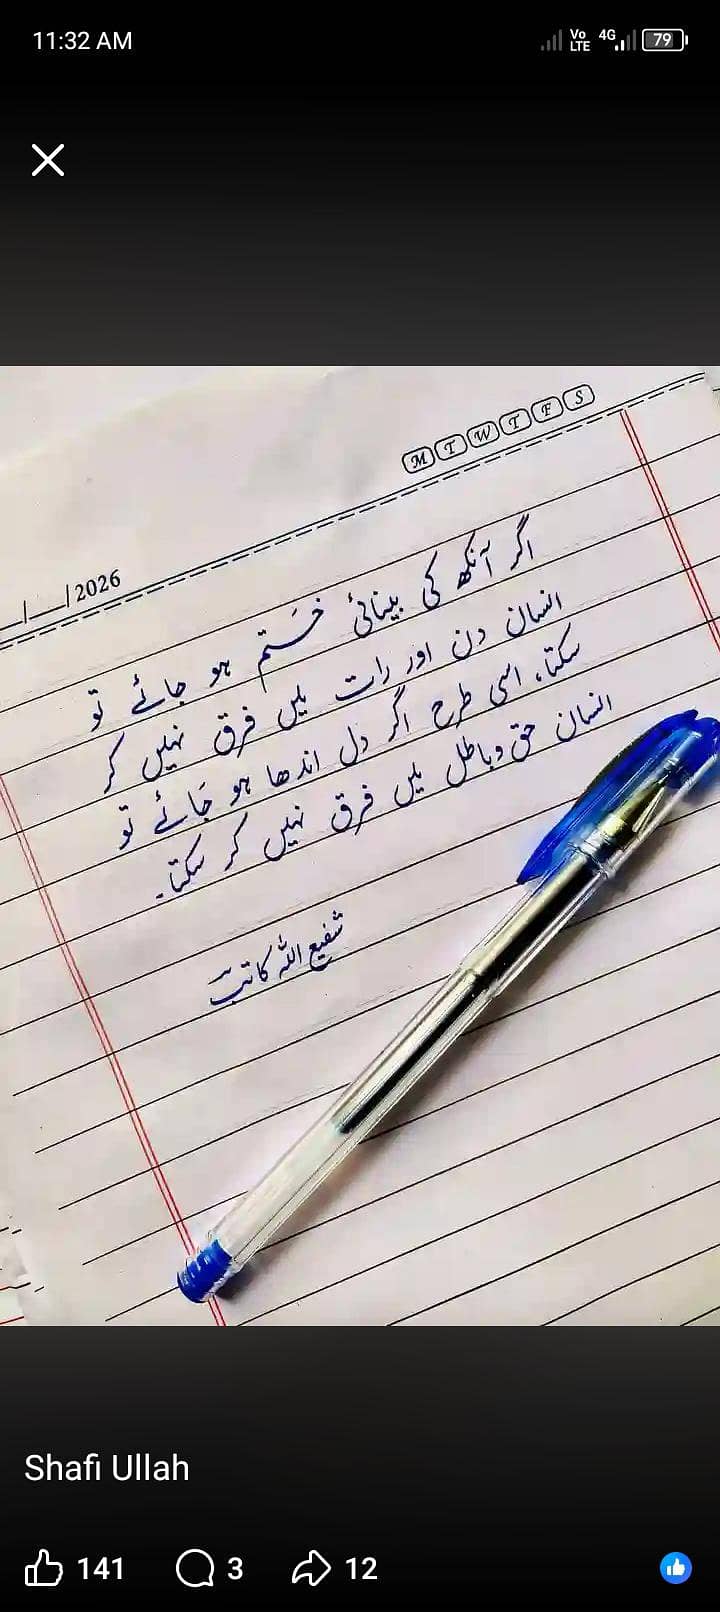 11:32 AM
Vo LTE 4G 79
M T W T F S
__/__/2026
اگر آنکھ کی بینائی خَستم ہو جائے تو
انسان دن اور رات میں فرق نہیں کر
سکتا، اسی طرح اگر دل اندھا ہو جَائے تو
انسان حق و باطل میں فرق نہیں کر سکتا۔
شفیع اللہ کاتب
Shafi Ullah
141 3 12